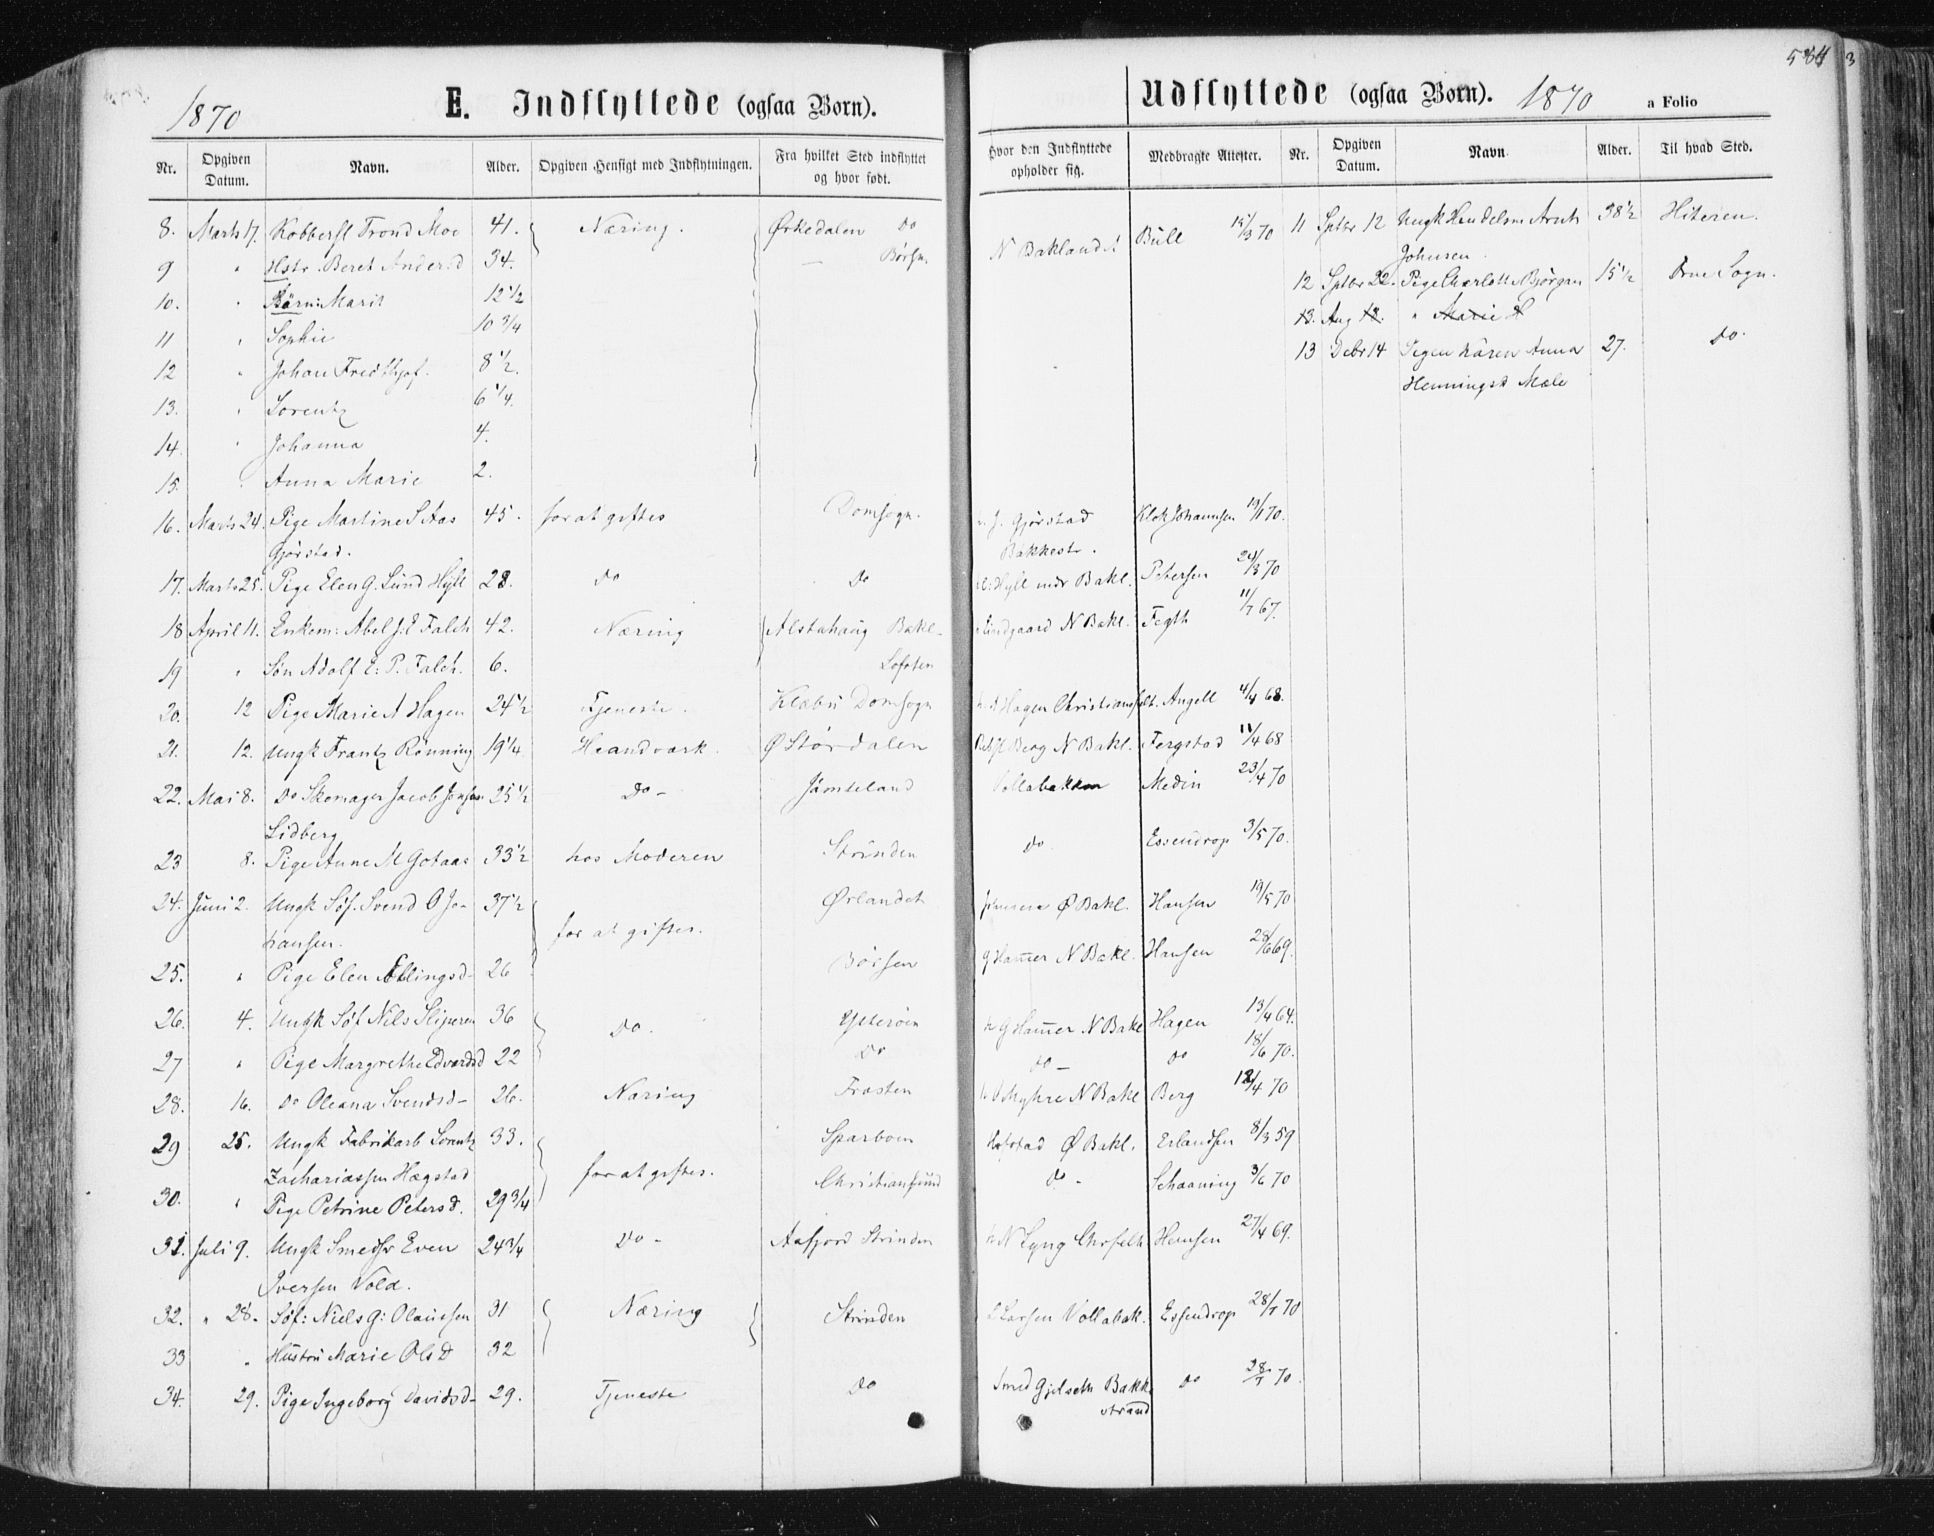 1870
E. Indflyttede (ogsaa Born).
Nr. Opgiven Datum. Navn. Alder. Opgiven Hensigt med Indflytningen. Fra hvilket Sted indflyttet og hvor født.
Hvor den Indflyttede opholder sig. Medbragte Attester.
8. Marts 17. Trond Moe 41. Næring. Ørkedalen Do N Baklandet Bull 15/3 70
9 " Hstr. Beret Andersd 34. — Børsn.
10. " Børn: Marit 12 1/2
11 " Sophie 10 3/4
12 " Johan Fredthjof. 8 1/2.
13. " Lorentz 6 1/4.
14. " Johanna 4.
15. " Anna Marie 2.
16. Marts 24. Pige Martine S Aas 45. for at giftes Domsogn. Gjørstad Klok Johannsen 13/1 70.
Gjørstad. Bakkestr.
17. Marts 25. Pige Elen G. Lund Hyll 28. Do Do Hyll Bakl. Petersen 24/3 70
18 April 11. Enkem: Abel J. E Falch 42. Næring Alstahaug Bakl. N Bakl. Fegth 11/7 67.
19 " Søn Adolf E: P. Falch. 6. Lofoten
20. 12 Pige Marie A Hagen 24 1/2 Tjeneste. Klæbu Domsogn Hagen Christiansfelt. Angell 4/4 68.
21. 12. Ungk Frantz Rønning 19 1/4 Haandværk. Ø Størdalen Berg N Bakl. Fergstad 11/4 68
22. Mai 8. Do Skomager Jacob Jonsen 25 1/2 Do - Jämteland Vollabakken Medin 23/4 70
Lidberg
23 8. Pige Anne M Gotaas 33 1/2 hos Moderen Strinden do. Essendrop 3/5 70.
24. Juni 2. Ungk Søf. Svend O Jo- 37 1/2 for at giftes. Ørlandet Ø Bakl. Hansen 19/5 70
hansen.
25. " Pige Elen Ellingsd- 26 Børsen G Hamer N Bakl. Hansen 28/6 69.
26. 4. Ungk Søf Nils Sliperen 36 Do. Ytterøen G Hamer N Bakl Hagen 13/4 64.
27 " Pige Margrethe Edvardsd 22 Do do - do 18/6 70.
28. 16. Do Oleana Svendsd- 26. Næring Frosten Myhre N Bakl Berg 12/4 70
29 25. Ungk Fabrikarb Lorentz 33. for at giftes. Sparboen Ø Bakl. Erlandsen 8/3 59
Zachariassen Hægstad
30. " Pige Petrine Petersd. 29 3/4 Christiansund do - Schaaning 3/6 70
31. Juli 9. Ungk Smedsv Even 24 3/4 Do - Aafjord Strinden N Lyng Chrfelt Hansen 27/4 69.
Iversen Vold.
32. " 28. Søf: Niels G: Olaussen 31 Næring Strinden L Larsen Vollabak. Essendrop 28/7 70
33 " Hustru Marie Olsd 32
34. 29. Pige Ingeborg Davidsd- 29. Tjeneste Do Smed Gjelseth Bakk do 28/7 70.
strand
584
3
Udflyttede (ogsaa Born). 1870 a Folio
Nr. Opgiven Datum. Navn. Alder. Til hvad Sted.
11 Sptbr 12 Ungk Handelsm Arnt 38 1/2 Hiteren.
Johnsen.
12 Sptbr 22. Pige Charlotte Bjørgan 15 1/2 Sogn.
13. Aug 12. " Marie H
13 Debr 14 Pigen Karen Anna 27. Do.
Henningsd Mæle